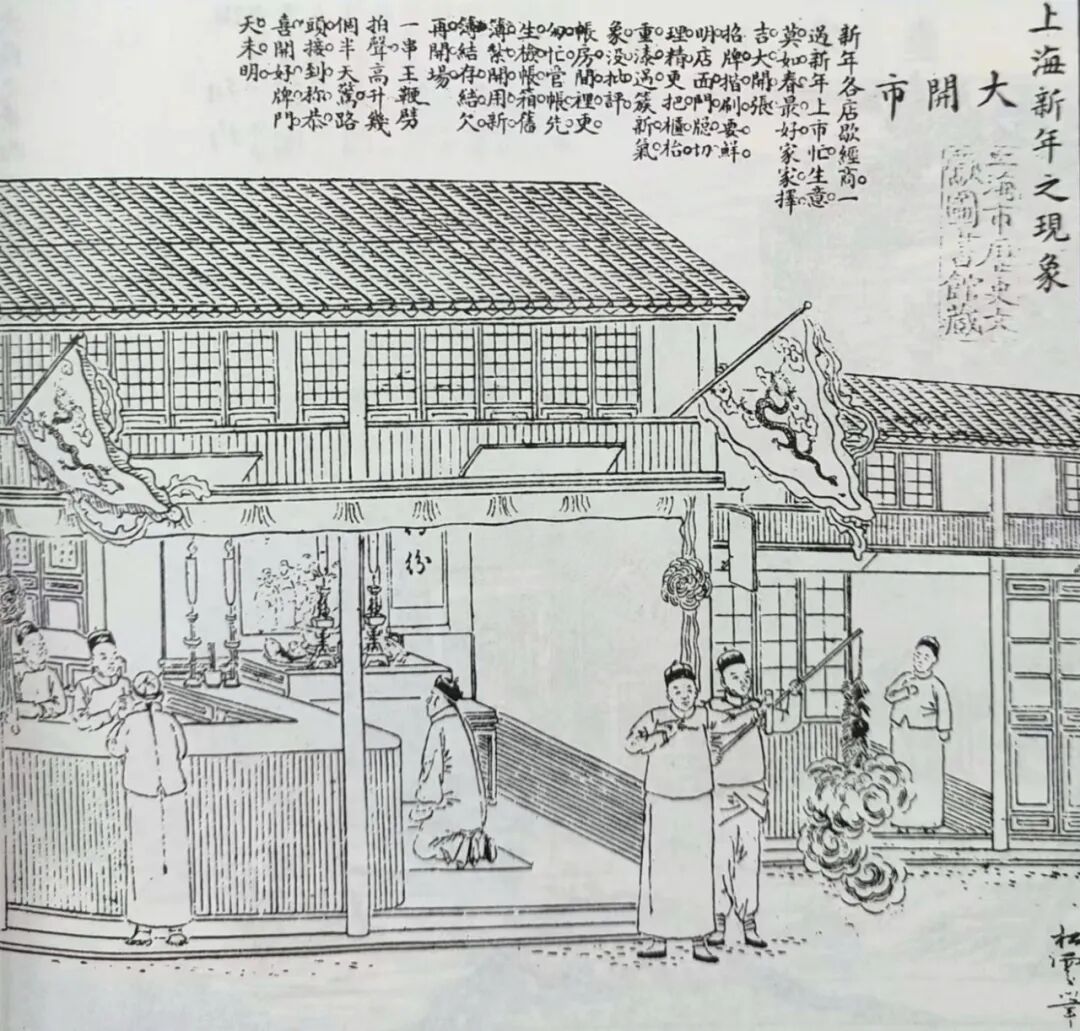 上海新年之現象
大開市
上海市历史文
献圖書館藏
新年各店歇經商。一
過新年上市忙。生意
莫如春最好。家家擇
吉大開張。
招牌揩刷要鮮
明。店面門牕切
理精。更把櫃枱
重漆過。簇新氣
象没抽評。
帳房間裡更
匆忙。管帳先
生檢帳箱。舊
簿紮開用新
簿。結存結欠
再開場。
一串王鞭劈
拍聲。高升幾
個半天驚。路
頭接到称恭
喜。開好牌門
天未明。
份
松雲筆